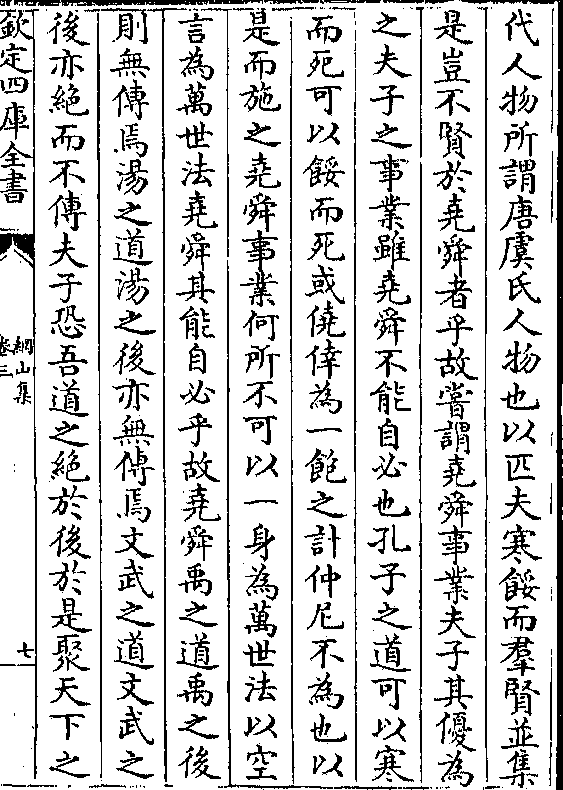 代人物所謂唐虞氏人物也以匹夫寒餒而羣賢並集
是豈不賢於堯舜者乎故嘗謂堯舜事業夫子其優為
之夫子之事業雖堯舜不能自必也孔子之道可以寒
而死可以餒而死或僥倖為一飽之計仲尼不為也以
是而施之堯舜事業何所不可以一身為萬世法以空
言為萬世法堯舜其能自必乎故堯舜禹之道禹之後
則無傳焉湯之道湯之後亦無傳焉文武之道文武之
後亦絕而不傳夫子恐吾道之絕於後於是聚天下之
欽定四庫全書
網山集
卷三
七